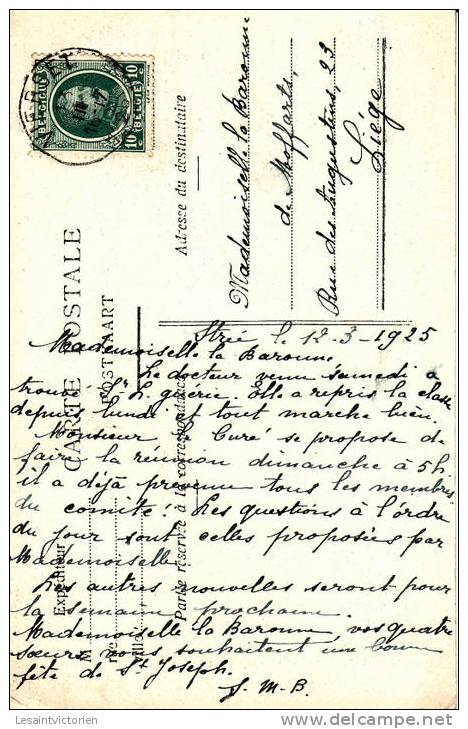 BELGIQUE 10 BELGIË 10
CARTE POSTALE
POSTKAART
Adresse du destinataire
Partie réservée à la correspondance
Expéditeur
Mademoiselle la Baronne
de Moffarts,
Rue des Augustins, 23
Liége
Strée le 12-3-1925
Mademoiselle la Baronne
Le docteur venu samedi a
trouvé Sr L. guérie. Elle a repris la classe
depuis lundi et tout marche bien.
Monsieur le Curé se propose de
faire la réunion dimanche à 5h
il a déjà prévenu tous les membres
du comité. Les questions à l'ordre
du jour sont celles proposées par
Mademoiselle.
Les autres nouvelles seront pour
la semaine prochaine.
Mademoiselle la Baronne, vos quatre
sœurs vous souhaitent une bonne
fête de St Joseph.
S. M-B.
Lesaintvictorien
delcampe.net